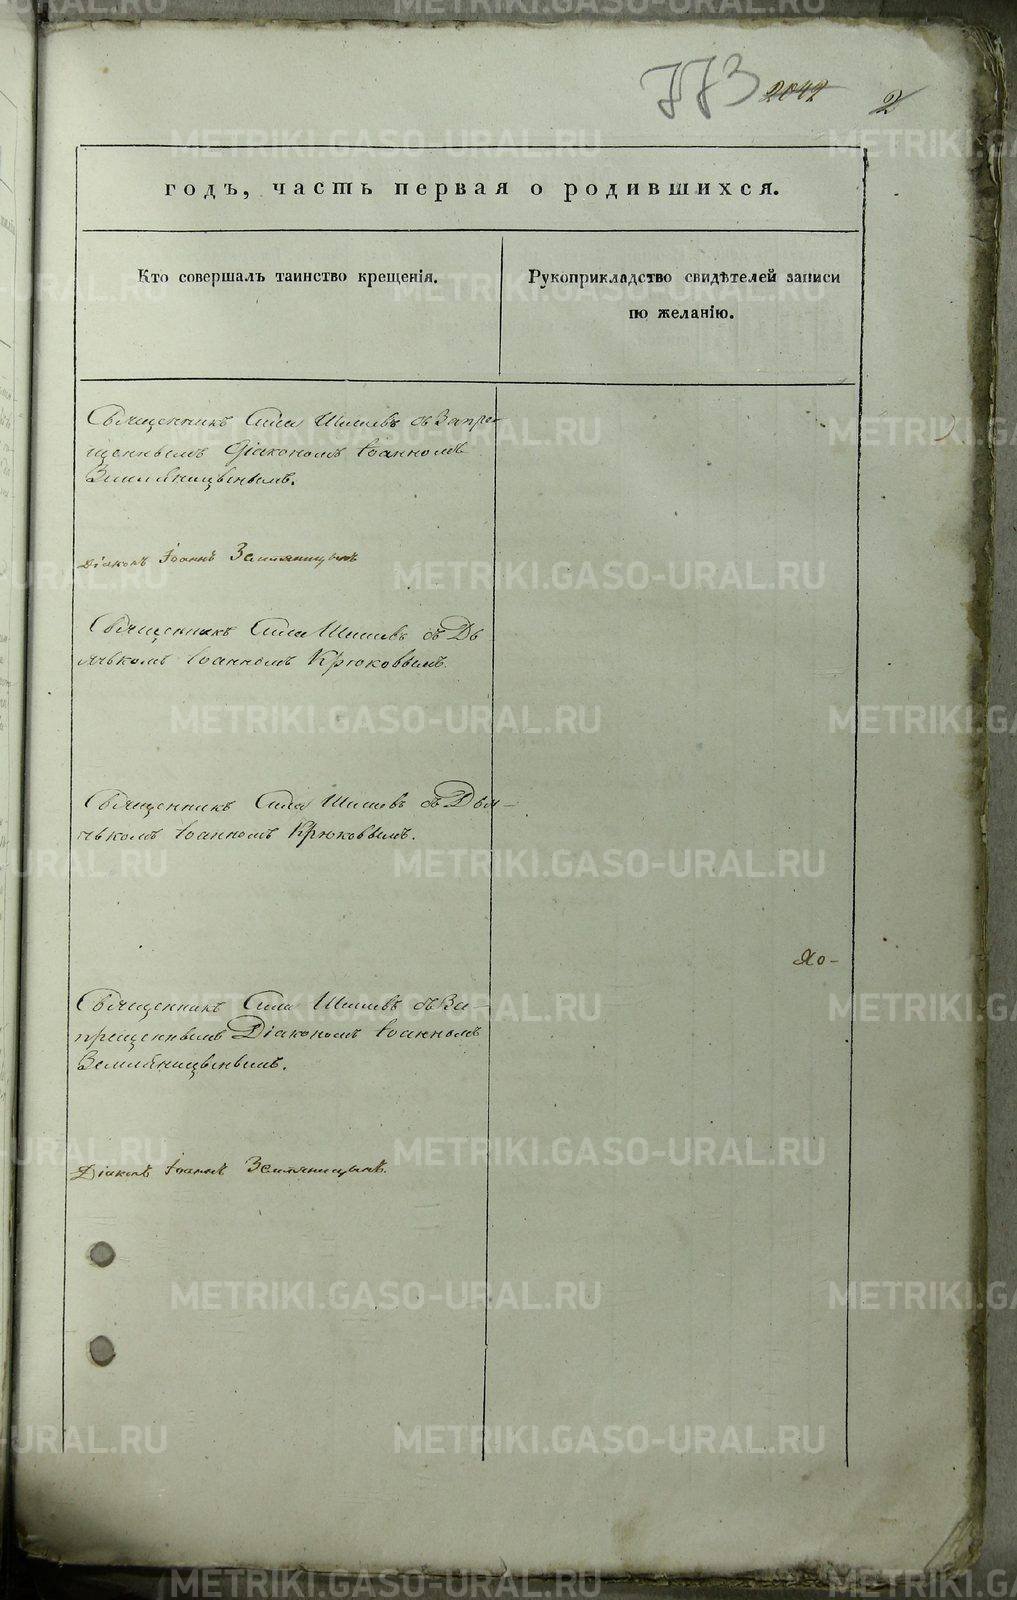 773 2042 2
годъ, часть первая о родившихся.
Кто совершалъ таинство крещенія.
Рукоприкладство свидѣтелей записи
по желанію.
Священникъ Сила Шишевъ съ Запре-
щеннымъ Діакономъ Іоанномъ
Земляницынымъ.
Діаконъ Іоаннъ Земляницынъ
Священникъ Сила Шишевъ съ Дь
ячькомъ Іоанномъ Крюковымъ.
Священникъ Сила Шишевъ съ Дья-
чькомъ Іоанномъ Крюковымъ.
Хо-
Священникъ Сила Шишевъ съ За-
прещеннымъ Діакономъ Іоанномъ
Земляницынымъ.
Діаконъ Іоаннъ Земляницынъ.
METRIKI.GASO-URAL.RU